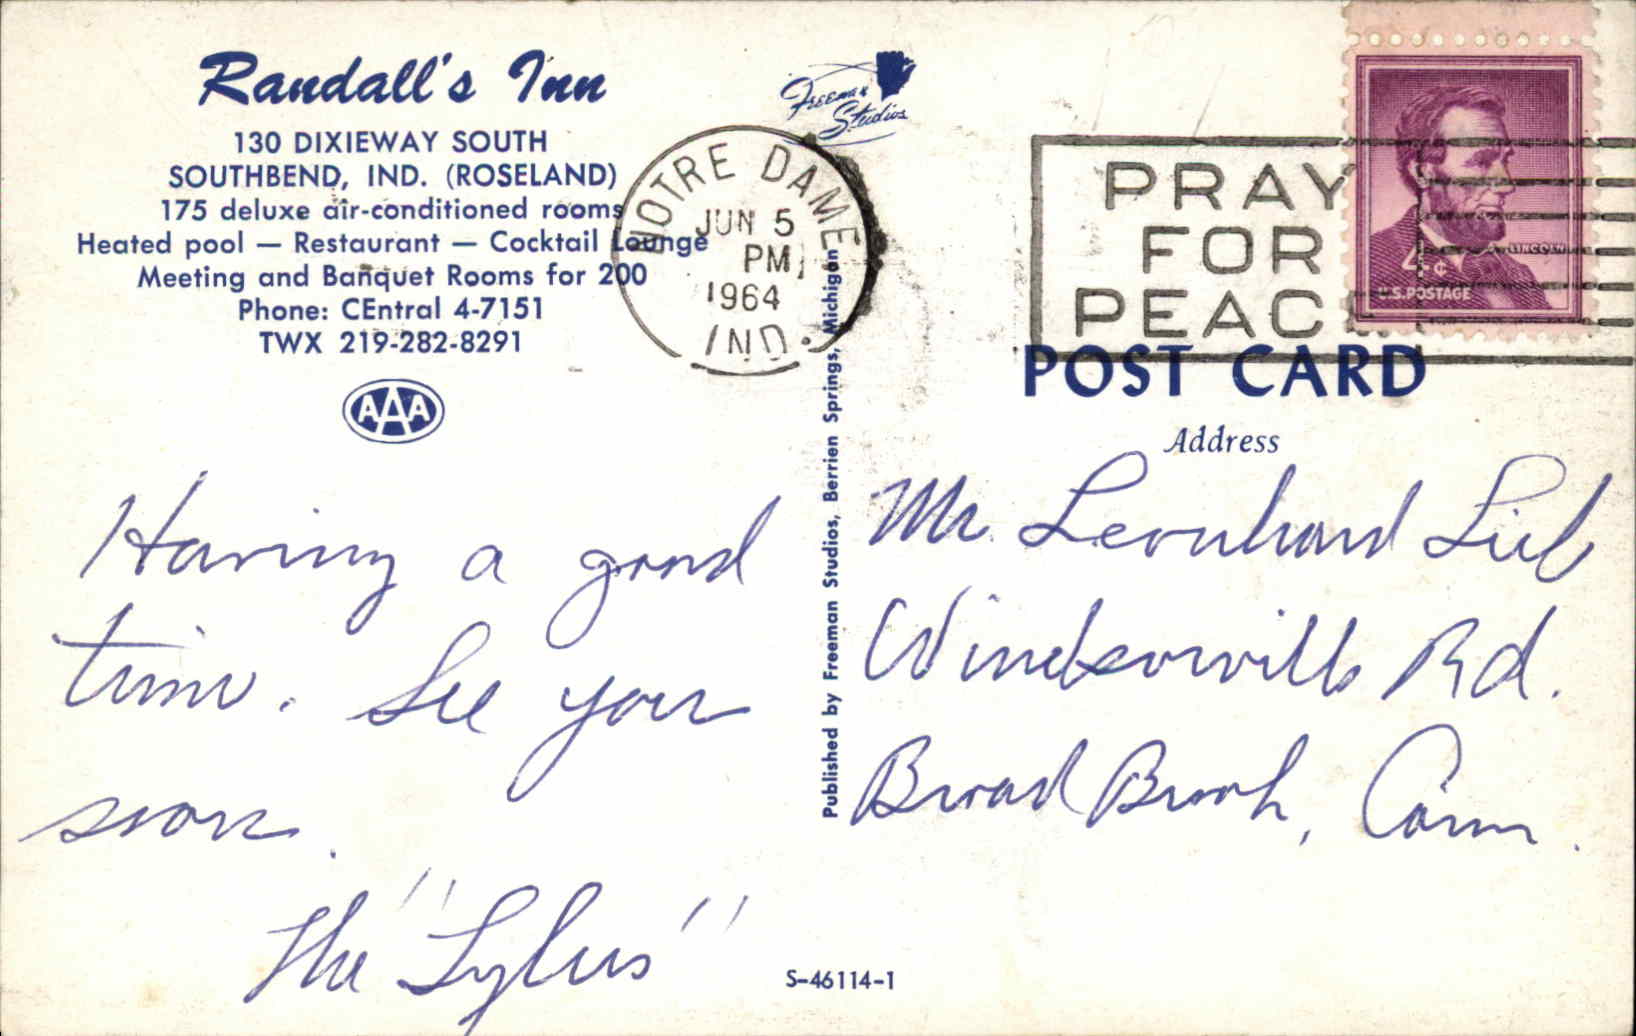 Randall's Inn
130 DIXIEWAY SOUTH
SOUTHBEND, IND. (ROSELAND)
175 deluxe air-conditioned rooms
Heated pool — Restaurant — Cocktail Lounge
Meeting and Banquet Rooms for 200
Phone: CEntral 4-7151
TWX 219-282-8291
AAA
Having a good
time. See you
soon.
The "
"
Freeman
Studios
NOTRE DAME
JUN 5
PM
1964
IND.
Published by Freeman Studios, Berrien Springs, Michigan
S-46114-1
PRAY
FOR
PEACE
LINCOLN
4¢
U.S. POSTAGE
POST CARD
Address
Mr. Leonhard
Windsorville Rd.
Broad Brook, Conn.